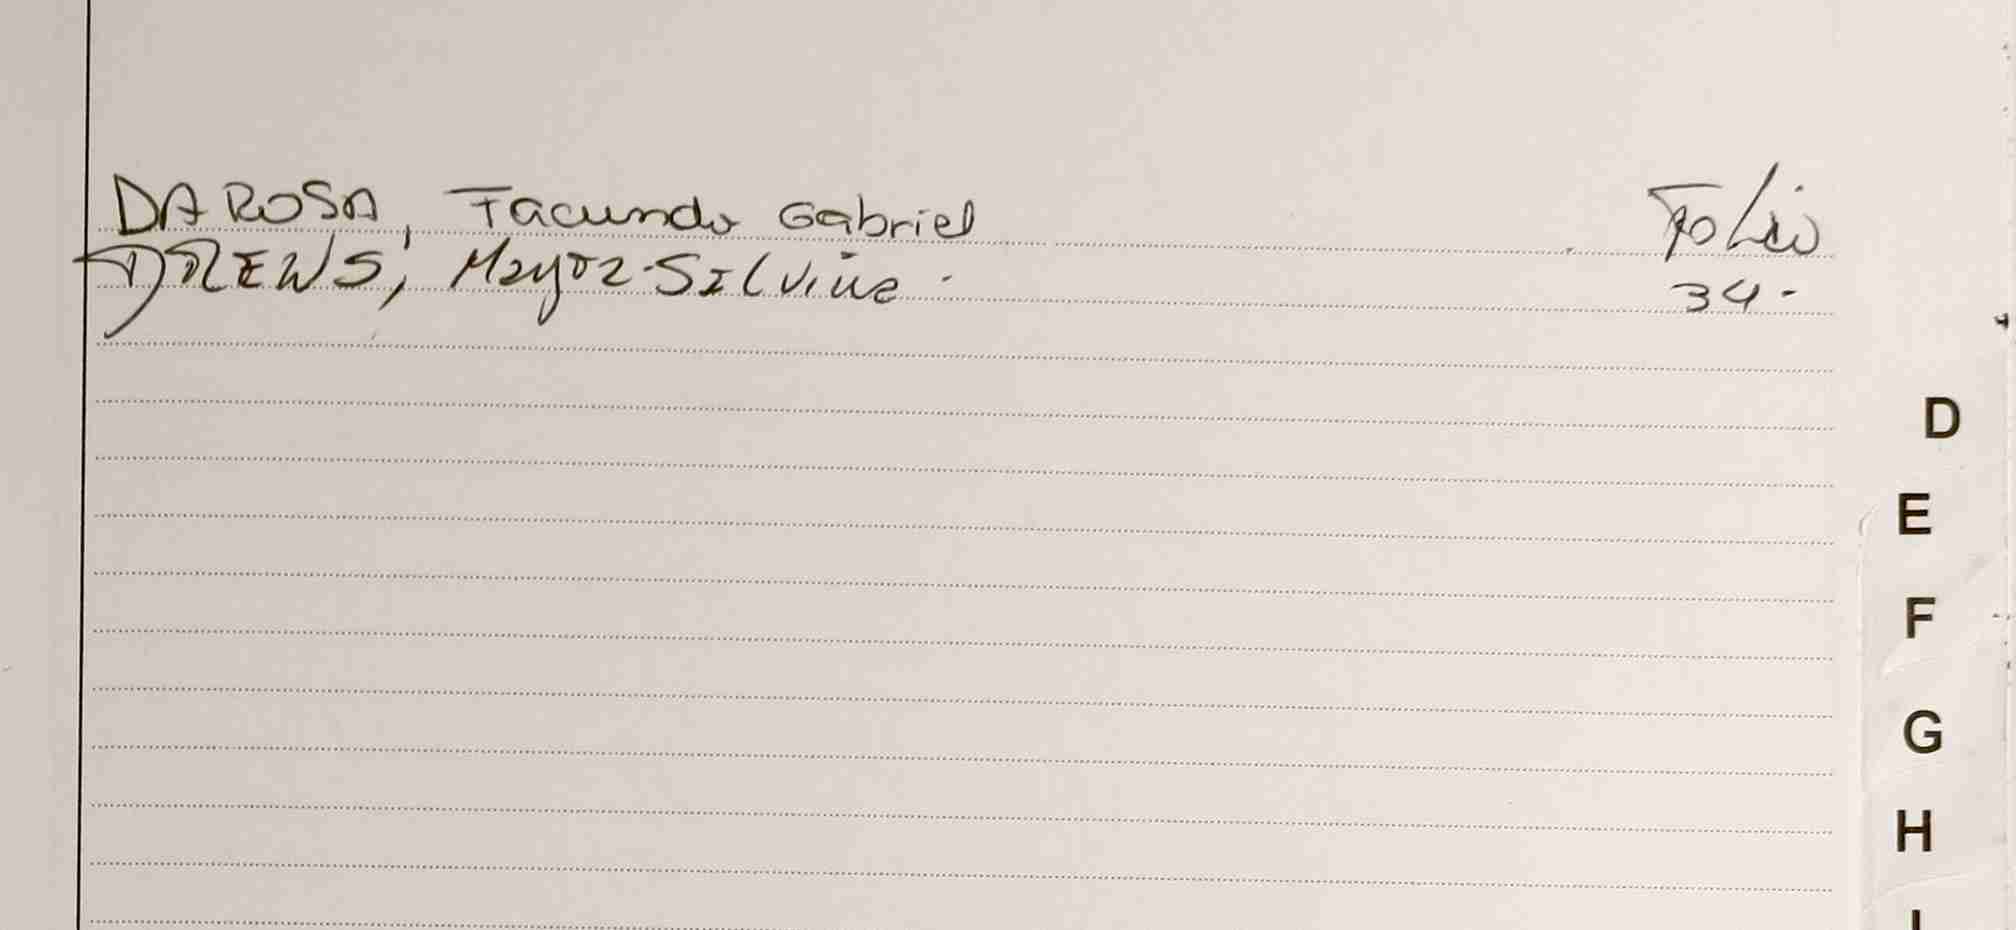 DA ROSA, Facundo Gabriel Folio
DREWS, Mayra Silvina. 34-
D
E
F
G
H
I